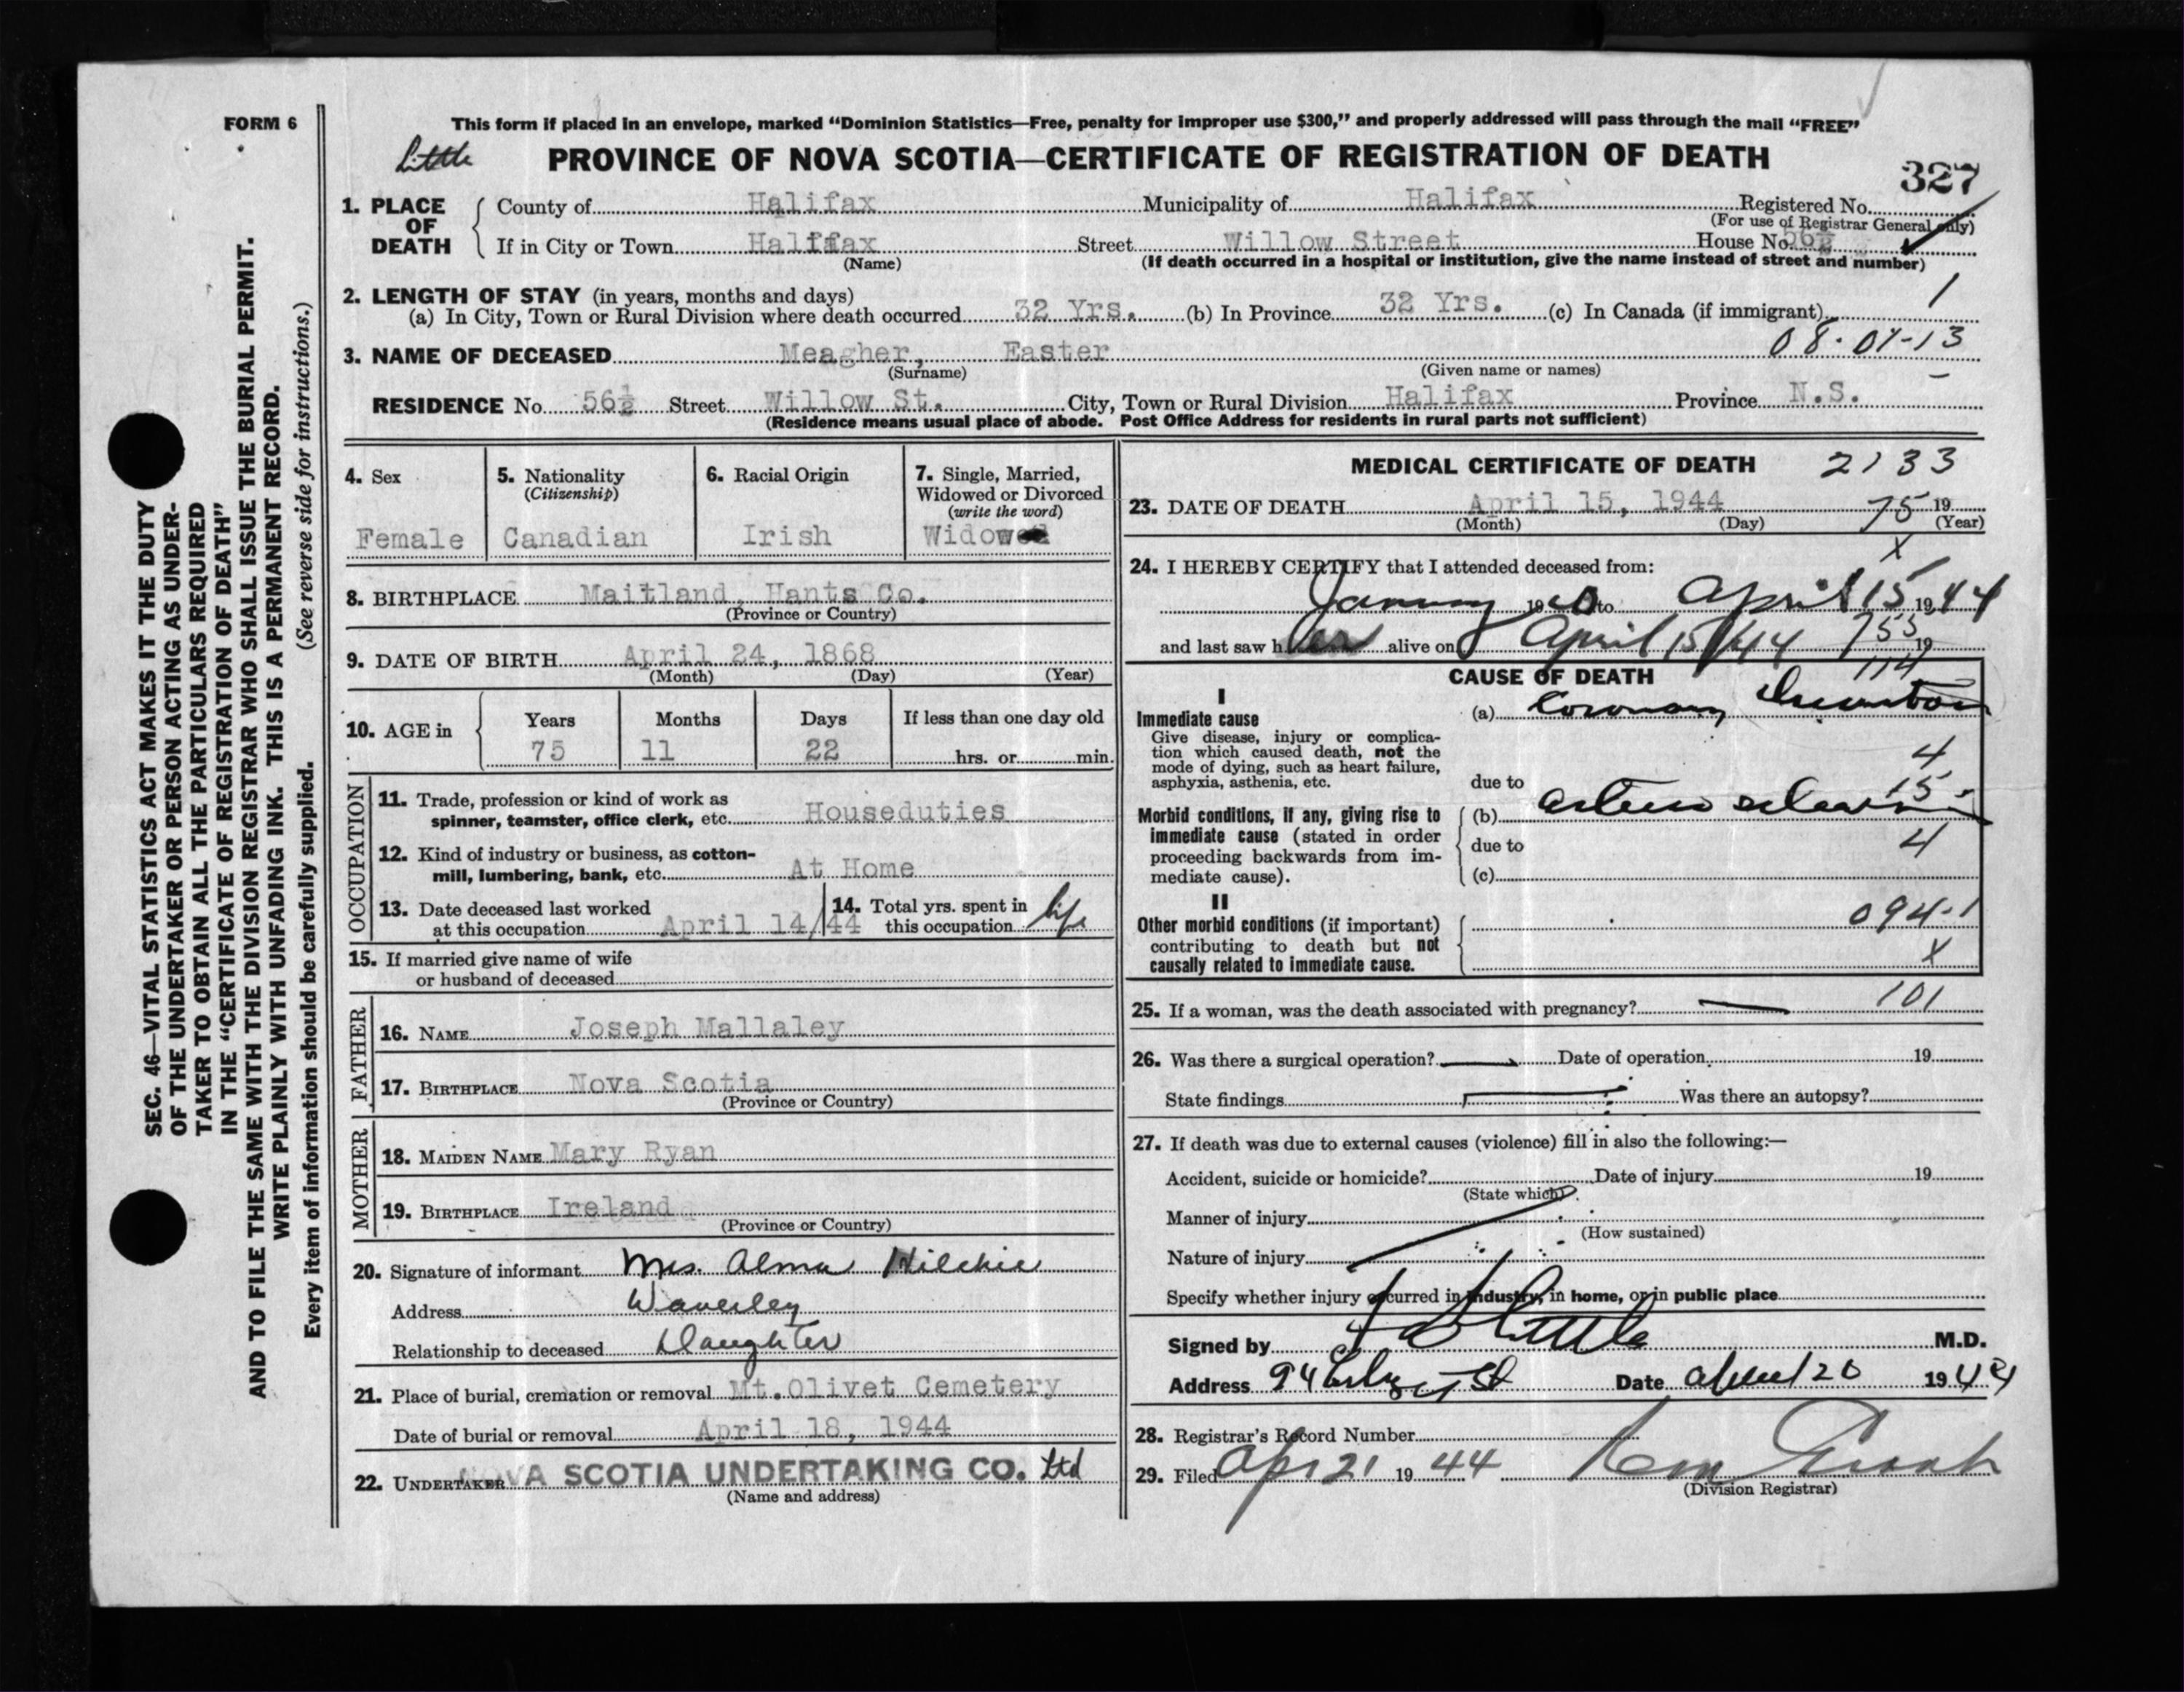 FORM 6
This form if placed in an envelope, marked "Dominion Statistics—Free, penalty for improper use $300," and properly addressed will pass through the mail "FREE"
Little
PROVINCE OF NOVA SCOTIA—CERTIFICATE OF REGISTRATION OF DEATH
327
1. PLACE OF DEATH
County of Halifax Municipality of Halifax Registered No.
(For use of Registrar General only)
If in City or Town Halifax Street Willow Street House No. 56½
(Name)
(If death occurred in a hospital or institution, give the name instead of street and number)
2. LENGTH OF STAY (in years, months and days)
(a) In City, Town or Rural Division where death occurred 32 Yrs. (b) In Province 32 Yrs. (c) In Canada (if immigrant)
1
08-01-13
3. NAME OF DECEASED Meagher, Easter
(Surname) (Given name or names)
RESIDENCE No. 56½ Street Willow St. City, Town or Rural Division Halifax Province N.S.
(Residence means usual place of abode. Post Office Address for residents in rural parts not sufficient)
4. Sex
Female
5. Nationality
(Citizenship)
Canadian
6. Racial Origin
Irish
7. Single, Married,
Widowed or Divorced
(write the word)
Widowed
8. BIRTHPLACE Maitland, Hants Co.
(Province or Country)
9. DATE OF BIRTH April 24, 1868
(Month) (Day) (Year)
10. AGE in
Years Months Days If less than one day old
75 11 22 hrs. or min.
OCCUPATION
11. Trade, profession or kind of work as
spinner, teamster, office clerk, etc. Houseduties
12. Kind of industry or business, as cotton-
mill, lumbering, bank, etc. At Home
13. Date deceased last worked
at this occupation April 14/44
14. Total yrs. spent in
this occupation life
15. If married give name of wife
or husband of deceased
FATHER
16. NAME Joseph Mallaley
17. BIRTHPLACE Nova Scotia
(Province or Country)
MOTHER
18. MAIDEN NAME Mary Ryan
19. BIRTHPLACE Ireland
(Province or Country)
20. Signature of informant Mrs. Alma Hilchie
Address Waverley
Relationship to deceased Daughter
21. Place of burial, cremation or removal Mt. Olivet Cemetery
Date of burial or removal April 18, 1944
22. UNDERTAKER NOVA SCOTIA UNDERTAKING CO. Ltd
(Name and address)
MEDICAL CERTIFICATE OF DEATH 2133
23. DATE OF DEATH April 15, 1944 75 19
(Month) (Day) (Year)
x
24. I HEREBY CERTIFY that I attended deceased from:
January 19 to April 15 1944
and last saw her alive on April 15/44 19
CAUSE OF DEATH
I
Immediate cause
Give disease, injury or complica-
tion which caused death, not the
mode of dying, such as heart failure,
asphyxia, asthenia, etc.
(a) Coronary Thrombosis
4
15
due to
Morbid conditions, if any, giving rise to
immediate cause (stated in order
proceeding backwards from im-
mediate cause).
(b) arterio sclerosis
due to
4
(c)
II
Other morbid conditions (if important)
contributing to death but not
causally related to immediate cause.
094-1
x
25. If a woman, was the death associated with pregnancy? 101
26. Was there a surgical operation? Date of operation 19
State findings Was there an autopsy?
27. If death was due to external causes (violence) fill in also the following:—
Accident, suicide or homicide? Date of injury 19
(State which)
Manner of injury
(How sustained)
Nature of injury
Specify whether injury occurred in industry, in home, or in public place
Signed by Little M.D.
Address 94 St Date April 20 1944
28. Registrar's Record Number
29. Filed Apr 21 1944
(Division Registrar)
SEC. 46—VITAL STATISTICS ACT MAKES IT THE DUTY
OF THE UNDERTAKER OR PERSON ACTING AS UNDER-
TAKER TO OBTAIN ALL THE PARTICULARS REQUIRED
IN THE "CERTIFICATE OF REGISTRATION OF DEATH"
AND TO FILE THE SAME WITH THE DIVISION REGISTRAR WHO SHALL ISSUE THE BURIAL PERMIT.
WRITE PLAINLY WITH UNFADING INK. THIS IS A PERMANENT RECORD.
Every item of information should be carefully supplied. (See reverse side for instructions.)